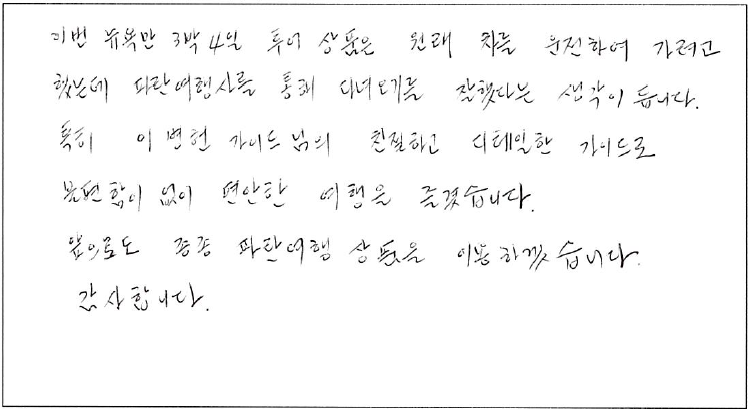 이번 뉴욕만 3박4일 투어 상품은 원래 차를 운전하여 가려고
했는데 파란여행사를 통해 다녀오기를 잘했다는 생각이 듭니다.
특히 이변헌 가이드님의 친절하고 디테일한 가이드로
불편함이 없이 편안한 여행을 즐겼습니다.
앞으로도 종종 파란여행 상품을 이용하겠습니다.
감사합니다.